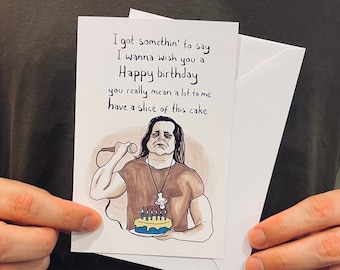 I got somethin' to say
I wanna wish you a
Happy birthday
you really mean a lot to me
have a slice of this cake